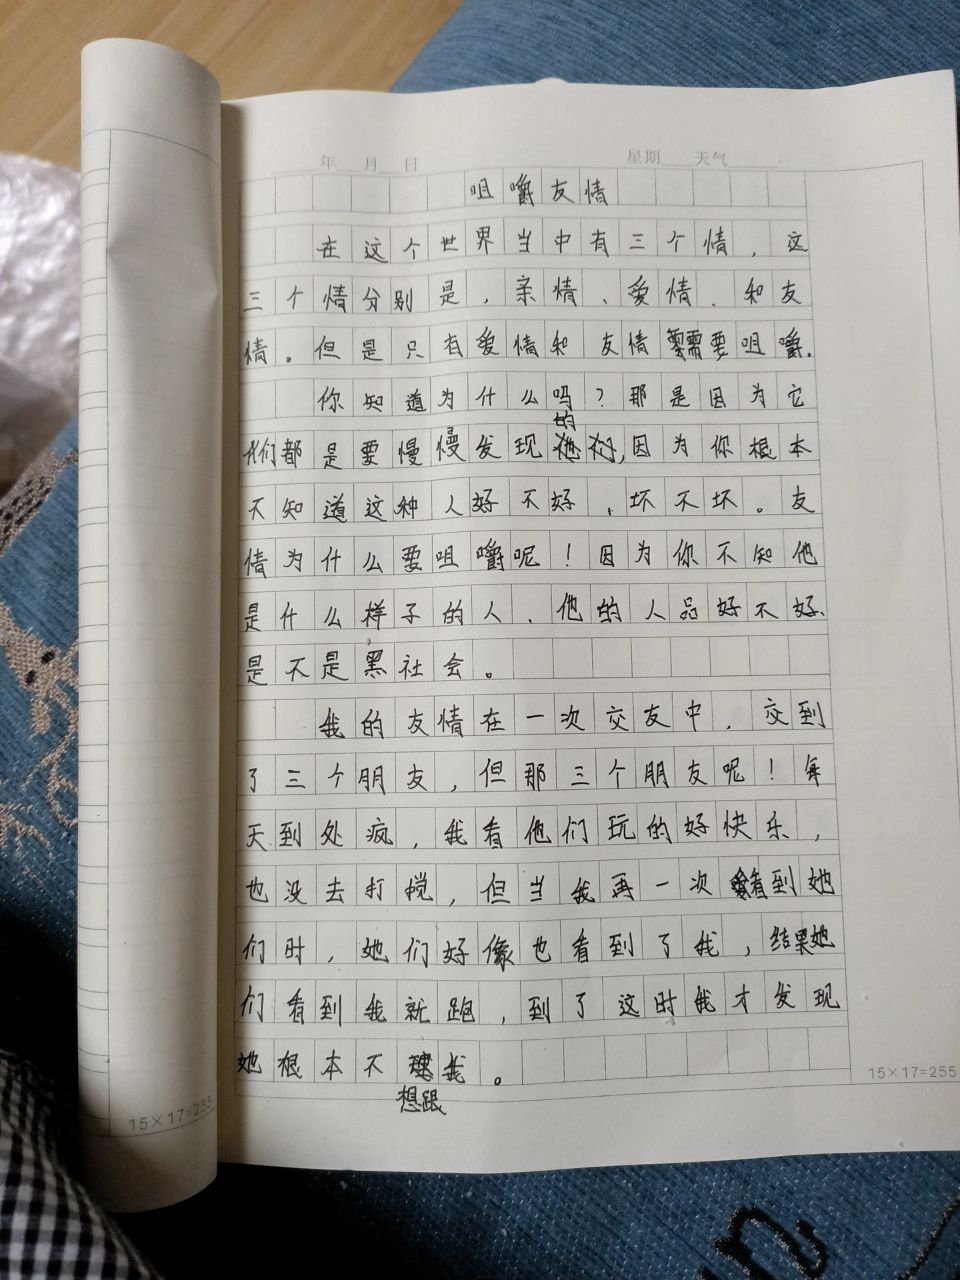 年 月 日 星期 天气
咀嚼友情
在这个世界当中有三个情，这
三个情分别是，亲情、爱情、和友
情。但是只有爱情和友情需要咀嚼.
你知道为什么吗？那是因为它
的
们都是要慢慢发现,因为你根本
不知道这种人好不好，坏不坏。友
情为什么要咀嚼呢！因为你不知他
是什么样子的人、他的人品好不好、
是不是黑社会。
我的友情在一次交友中，交到
了三个朋友，但那三个朋友呢！每
天到处疯，我看他们玩的好快乐，
也没去打搅，但当我再一次看到她
们时，她们好像也看到了我，结果她
们看到我就跑，到了这时我才发现
她根本不我。
想跟
15×17=255
15×17=255